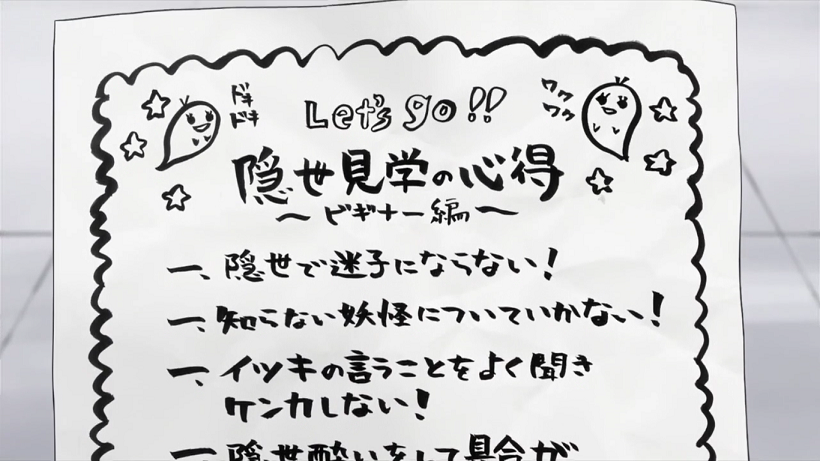 ドキ
ドキ
Let's go!!
ワク
ワク
隠世見学の心得
～ビギナー編～
一、隠世で迷子にならない!
一、知らない妖怪についていかない!
一、イツキの言うことをよく聞き
ケンカしない!
一、隠世酔いをして具合が